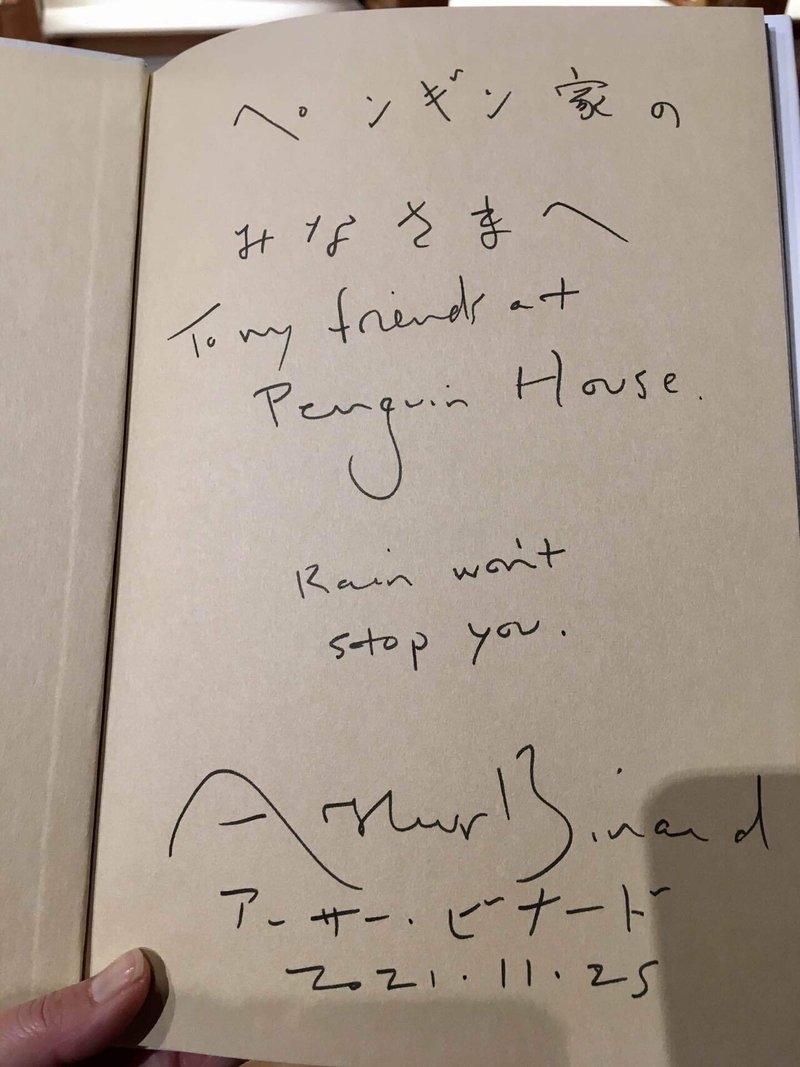 ペンギン家の
みなさまへ
To my friends at
Penguin House.
Rain won't
stop you.
Arthur Binard
アーサー・ビナード
2021.11.25